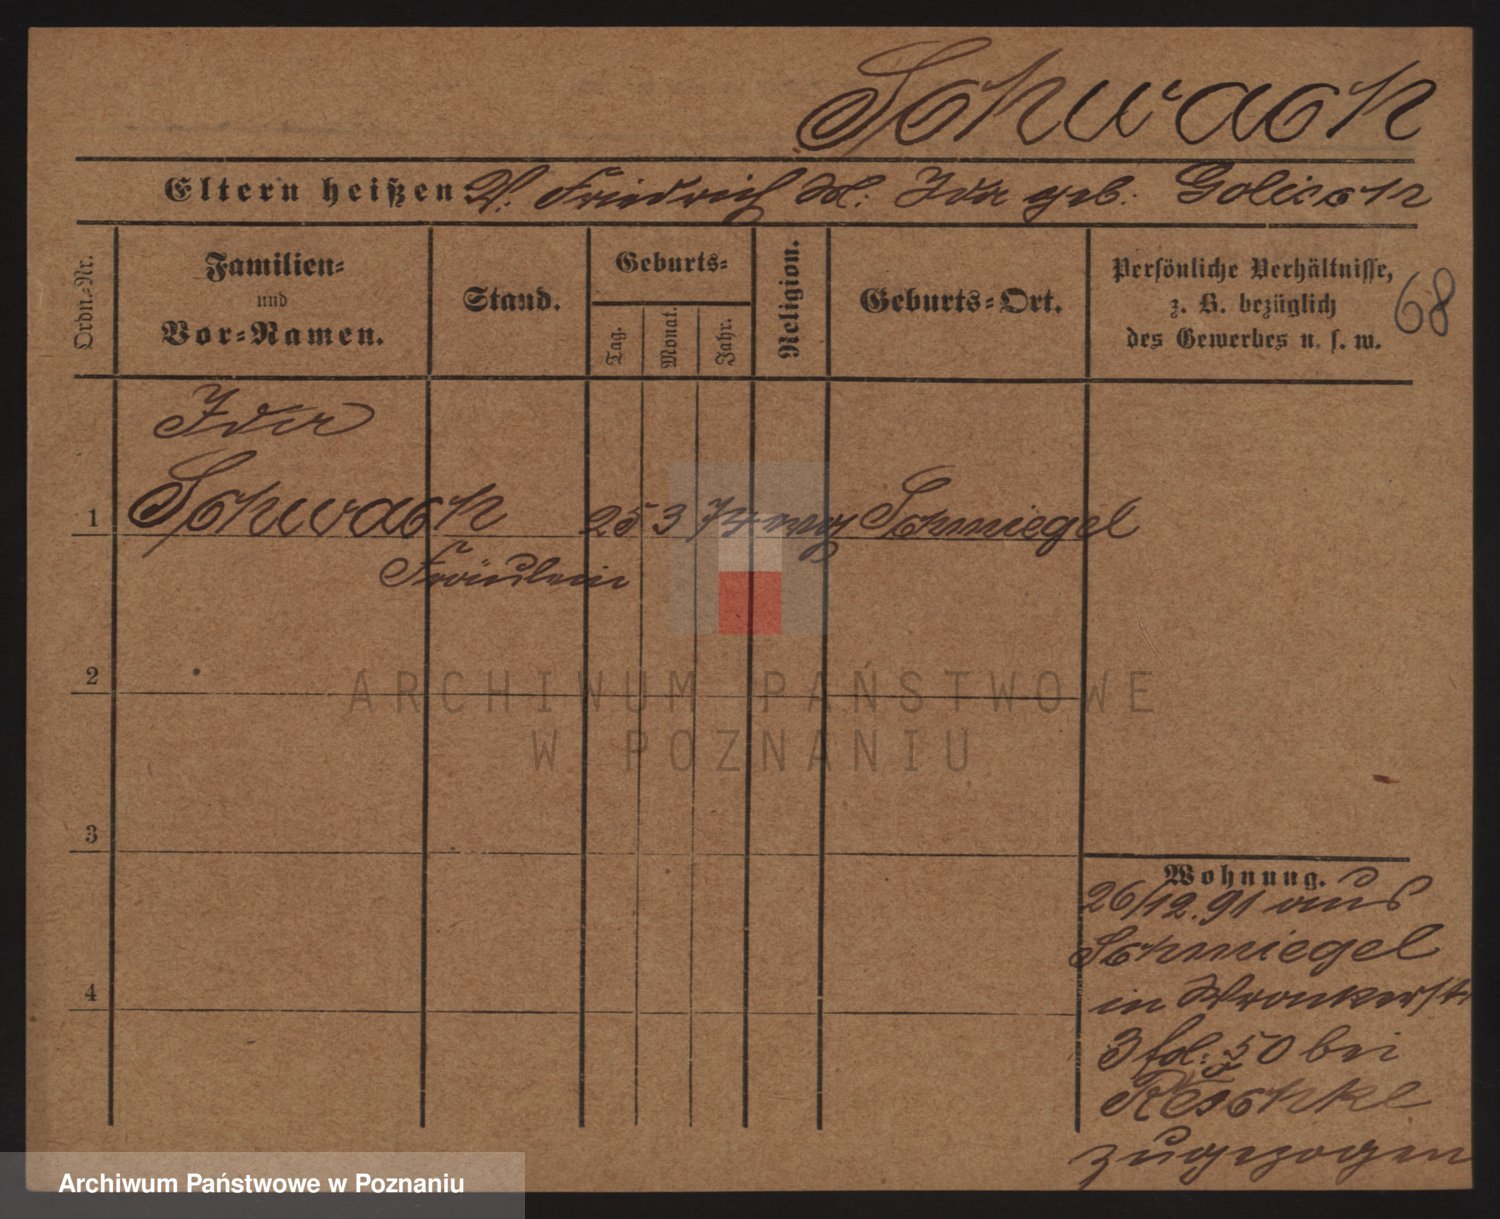 Schwach
Eltern heißen V. Friedrich M. Ida geb. Golisch
Ordn.-Nr.
Familien-
und
Vor-Namen.
Stand.
Geburts-
Tag.
Monat.
Jahr.
Religion.
Geburts-Ort.
Persönliche Verhältnisse,
z. B. bezüglich
des Gewerbes u. s. w.
68
Ida
1 Schwach 25 3 74 evg Schmiegel
Fräulein
2
3
4
Wohnung.
26/12. 91 aus
Schmiegel
in Wronkerstr
3 fol: 50 bei
zugezogen
ARCHIWUM PAŃSTWOWE
W POZNANIU
Archiwum Państwowe w Poznaniu